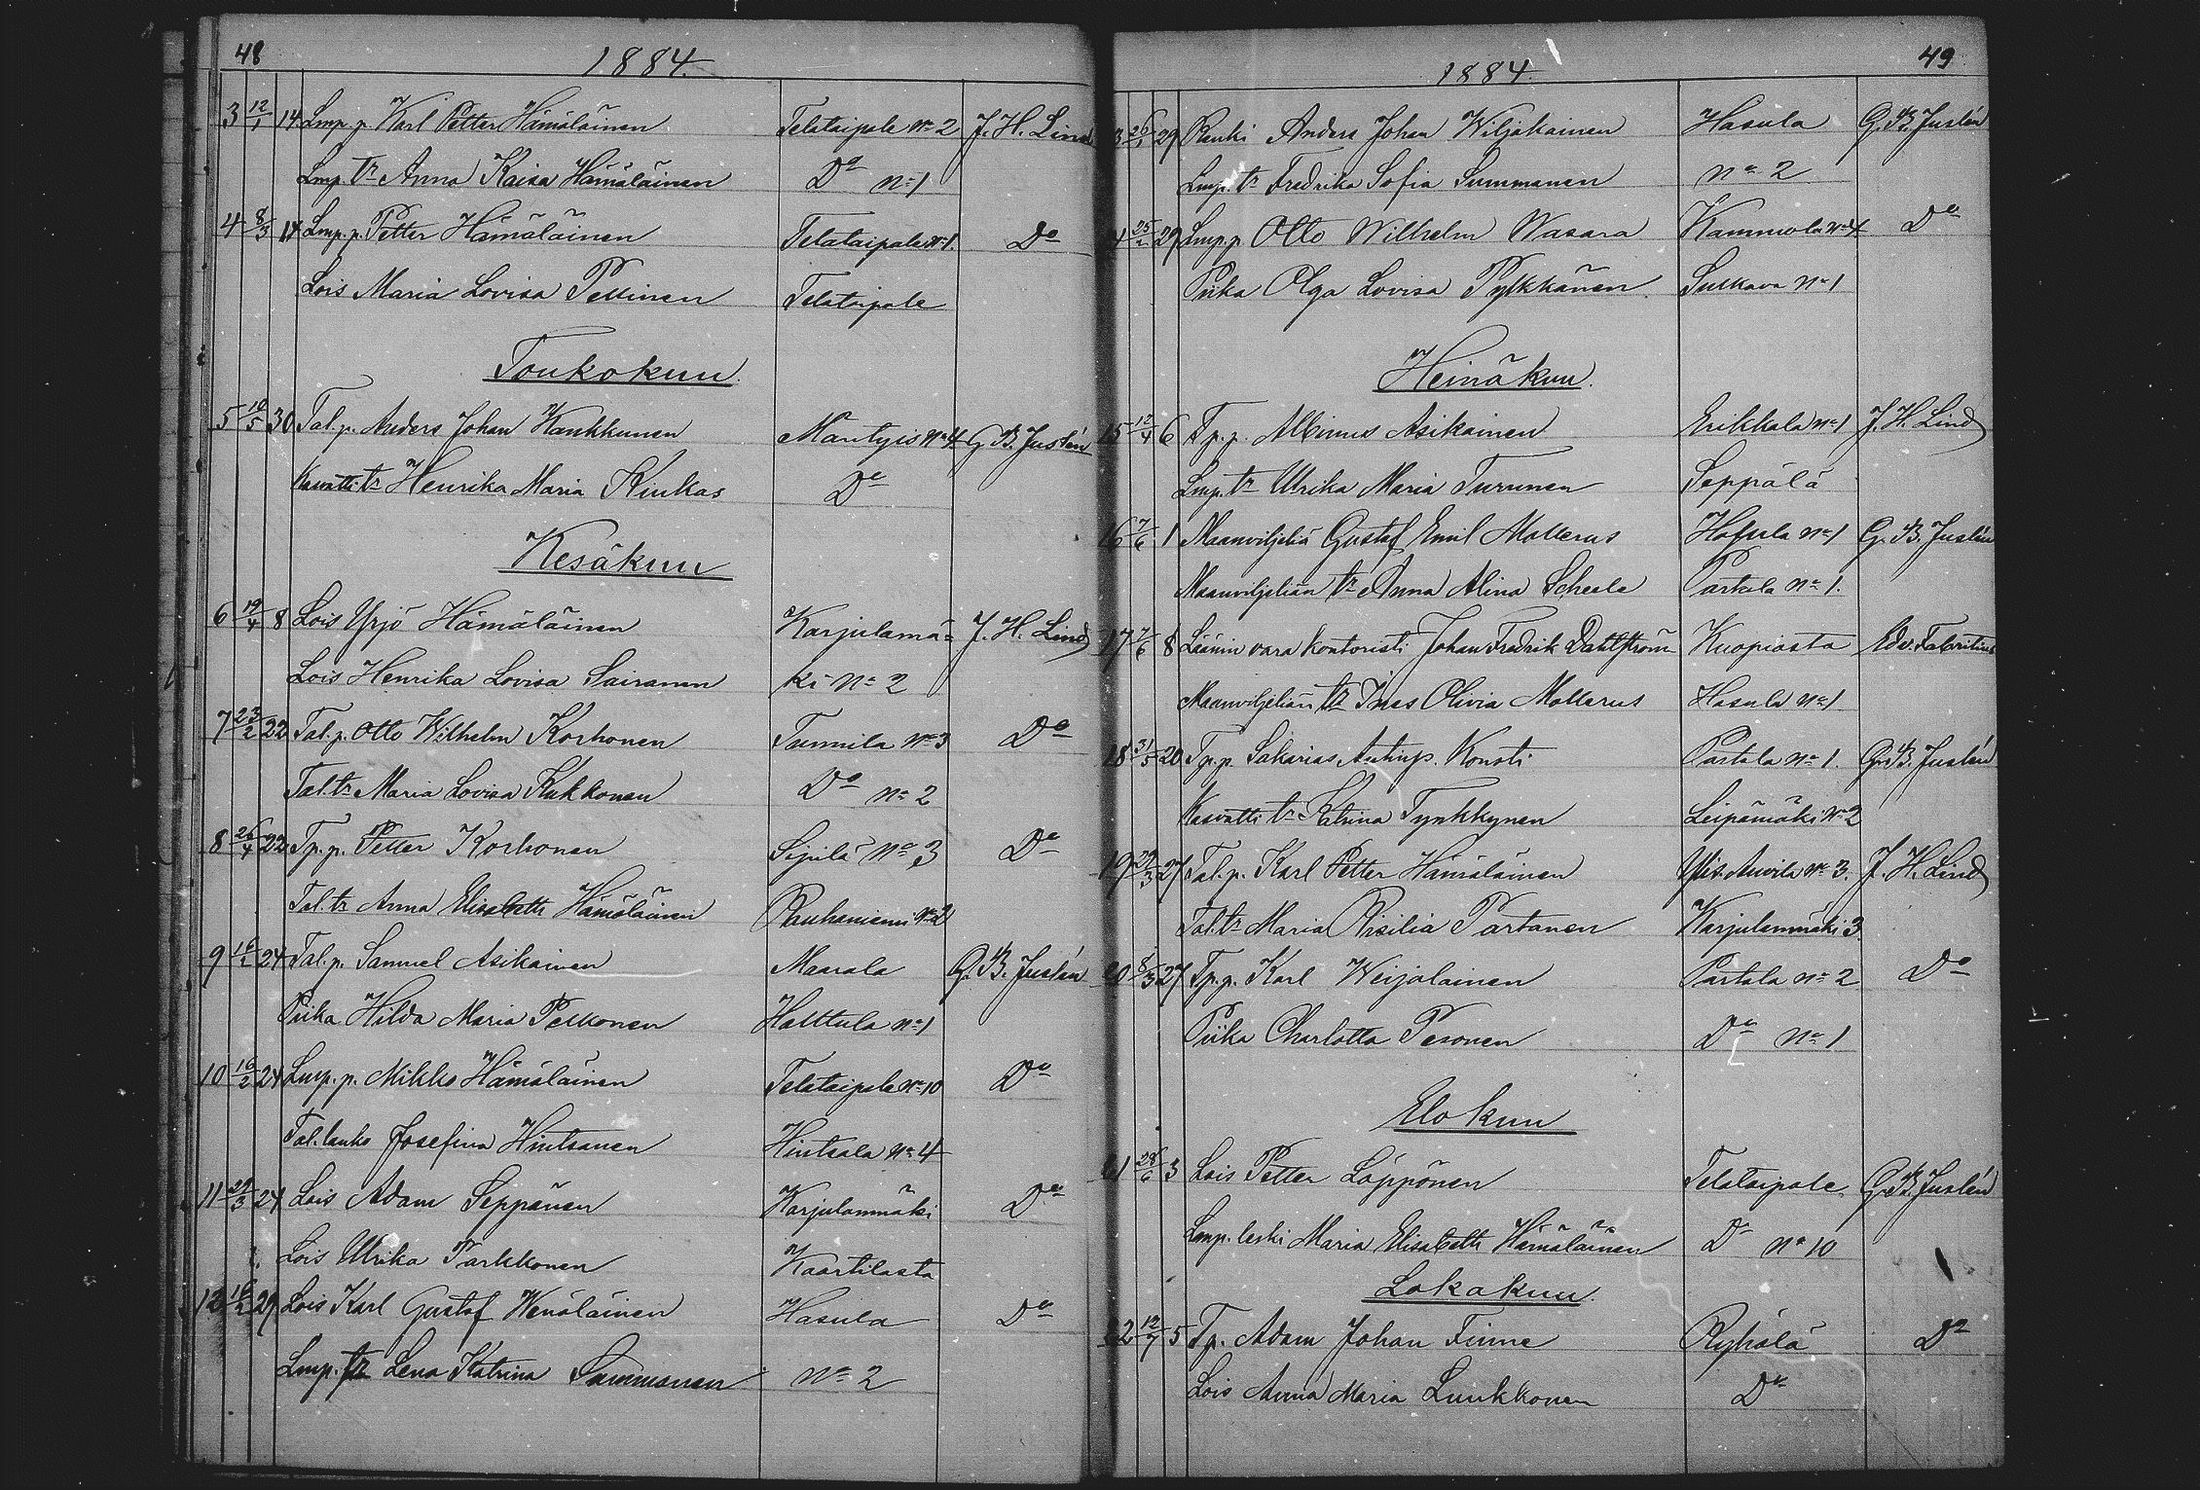 48
1884.
3 12/1 14 Lmp. p. Karl Petter Hämäläinen Telataipale No 2 J. H. Lind
Lmp. tr Anna Kaisa Hämäläinen Do No 1
4 8/3 14 Lmp. p. Petter Hämäläinen Telataipale No 1. Do
Lois Maria Lovisa Pellinen Telataipale
Toukokuu.
5 10/5 30 Tal. p. Anders Johan Kankkunen Mäntyis No 4 G. B. Juslén
Kasvatti tr Henrika Maria Kiukas Do
Kesäkuu
6 19/4 8 Lois Yrjö Hämäläinen Karjulamä- J. H. Lind
Lois Henrika Lovisa Sairanen ki No 2
7 23/2 22 Tal. p. Otto Wilhelm Korhonen Tunnila No 3 Do
Tal. tr Maria Lovisa Kukkonen Do No 2
8 26/4 22 Tp. p. Petter Korhonen Sipilä No 3 Do
Tal. tr Anna Elisabeth Hämäläinen Rauhaniemi No 2
9 24 Tal. p. Samuel Asikainen Maarala G. B. Juslén
Piika Hilda Maria Pelkonen Halttula No 1
10 16/2 24 Lmp. p. Mikko Hämäläinen Telataipale No 10 Do
Tal. Josefina Hintsanen Hintsala No 4
11 29/3 24 Lois Adam Seppänen Karjulanmäki Do
Lois Ulrika Parkkonen Kaartilasta
12 16/2 29 Lois Karl Gustaf Wenäläinen Hasula Do
Lmp. tr Lena Katrina Summanen No 2
49
1884.
3 26/1 29 Renki Anders Johan Wiljakainen Hasula G. B. Juslén
Lmp. tr Fredrika Sofia Summanen No 2
4 29 Lmp. p. Otto Wilhelm Wasara Kammola No 4 Do
Piika Olga Lovisa Pylkkänen. Sulkava No 1
Heinäkuu.
15 12/4 6 Tp. p. Albinus Asikainen Erikkala No 1 J. H. Lind
Lmp. tr Ulrika Maria Turunen Seppälä
16 7/6 1 Maanviljeliä Gustaf Emil Mollerus Hasula No 1 G. B. Juslén
Maanviljeliän tr Anna Alina Scheele Partala No 1.
17 7/6 8 Läänin vara kontoristi Johan Fredrik Dahlström Kuopiosta Edv. Fabritius
Maanviljeliän tr Inas Olivia Mollerus Hasula No 1
18 31/5 20 Tp. p. Sakarias Antinp. Konsti Partala No 1. G. B. Juslén
Kasvatti tr Katrina Tynkkynen Leipämäki No 2
19 29/3 27 Tal. p. Karl Petter Hämäläinen Ylis-Auvila No 3. J. H. Lind
Tal. tr Maria Risilia Partanen Karjulanmäki 3.
20 8/3 27 Tp. p. Karl Weijalainen Partala No 2 Do
Piika Charlotta Pesonen Do No 1
Elokuu
21 28/6 3 Lois Petter Löppönen Telataipale. G. B. Juslén
Lmp. leski Maria Elisabeth Hämäläinen Do No 10
Lokakuu.
22 12/7 5 Tp. Adam Johan Finne Ryhälä Do
Lois Anna Maria Luukkonen Do